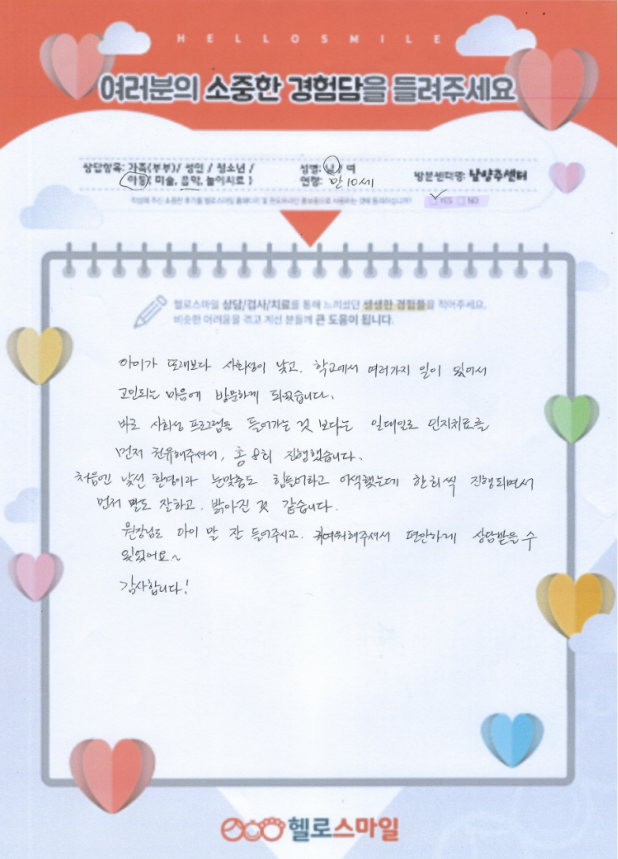 HELLOSMILE
여러분의 소중한 경험담을 들려주세요
상담항목: 가족(부부)/ 성인 / 청소년 /
아동( 미술, 음악, 놀이치료 )
성별: 남 / 여
연령: 만 10세
방문센터명: 남양주센터
작성해 주신 소중한 후기를 헬로스마일 홈페이지 및 온오프라인 홍보용으로 사용하는 것에 동의하십니까?
YES NO
헬로스마일 상담/검사/치료를 통해 느끼셨던 생생한 경험들을 적어주세요.
비슷한 어려움을 겪고 계신 분들께 큰 도움이 됩니다.
아이가 또래보다 사회성이 낮고, 학교에서 여러가지 일이 있어서
고민되는 마음에 방문하게 되었습니다.
바로 사회성 프로그램을 들어가는 것 보다는 일대일로 인지치료를
먼저 권유해주셔서, 총 8회 진행했습니다.
처음엔 낯선 환경이라 눈맞춤도 힘들어하고 어색했는데 한회씩 진행되면서
먼저 말도 잘하고, 밝아진 것 같습니다.
원장님도 아이 말 잘 들어주시고, 해주셔서 편안하게 상담받을 수
있었어요~
감사합니다!
헬로스마일